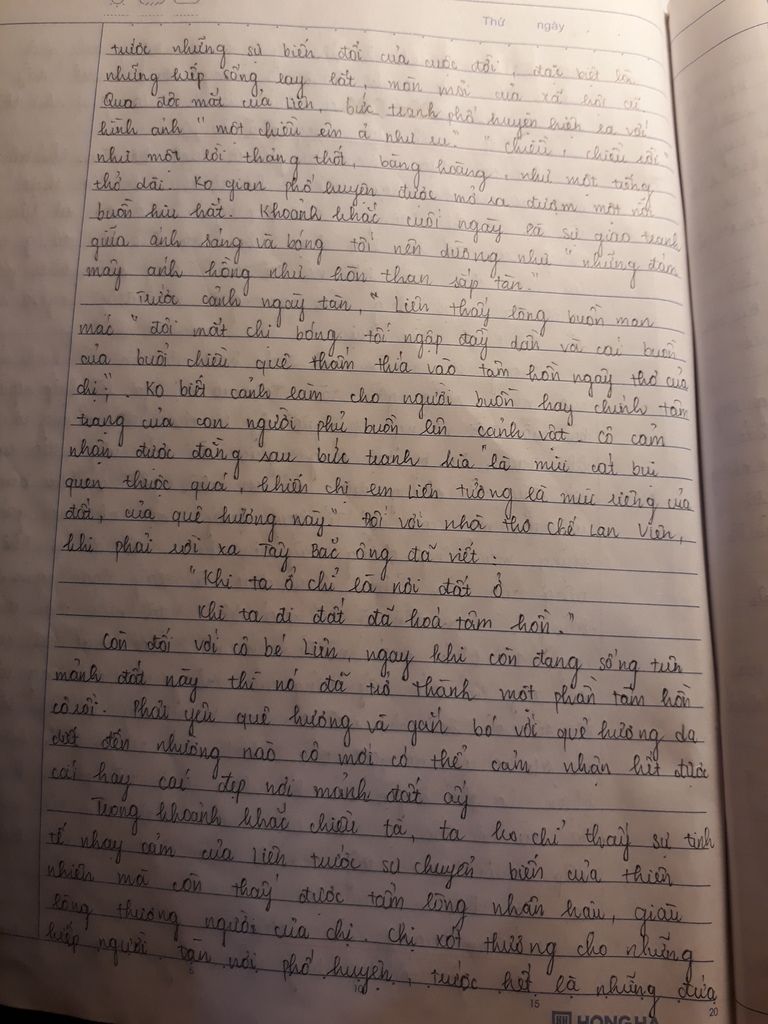 Thứ ngày
trước những sự biến đổi của cuộc đời, đặc biệt là
những kiếp sống lay lắt, mòn mỏi của xã hội cũ.
Qua đôi mắt của Liên, bức tranh phố huyện hiện ra với
hình ảnh "một chiều êm ả như ru". "Chiều, chiều rồi"
như một lời thảng thốt, bâng hoàng, như một tiếng
thở dài. Ko gian phố huyện được mở ra đượm một nỗi
buồn hiu hắt. Khoảnh khắc cuối ngày là sự giao tranh
giữa ánh sáng và bóng tối nên dường như "những đám
mây ánh hồng như hòn than sắp tàn."
Trước cảnh ngày tàn, "Liên thấy lòng buồn man
mác" "đôi mắt chị bóng tối ngập đầy dần và cái buồn
của buổi chiều quê thấm thía vào tâm hồn ngây thơ của
chị". Ko biết cảnh làm cho người buồn hay chính tâm
trạng của con người phủ buồn lên cảnh vật. Cô cảm
nhận được đằng sau bức tranh kia "là mùi cát bụi
quen thuộc quá, khiến chị em Liên tưởng là mùi riêng của
đất, của quê hương này." Đối với nhà thơ Chế Lan Viên,
khi phải rời xa Tây Bắc ông đã viết:
"Khi ta ở chỉ là nơi đất ở
Khi ta đi đất đã hoá tâm hồn."
Còn đối với cô bé Liên, ngay khi còn đang sống trên
mảnh đất này thì nó đã trở thành một phần tâm hồn
cô rồi. Phải yêu quê hương và gắn bó với quê hương da
diết đến nhường nào cô mới có thể cảm nhận hết được
cái hay cái đẹp nơi mảnh đất ấy
Trong khoảnh khắc chiều tà, ta ko chỉ thấy sự tinh
tế nhạy cảm của Liên trước sự chuyển biến của thiên
nhiên mà còn thấy được tấm lòng nhân hậu, giàu
lòng thương người của chị. Chị xót thương cho những
kiếp người tàn nơi phố huyện, trước hết là những đứa
5 10 15 20
HONG HA